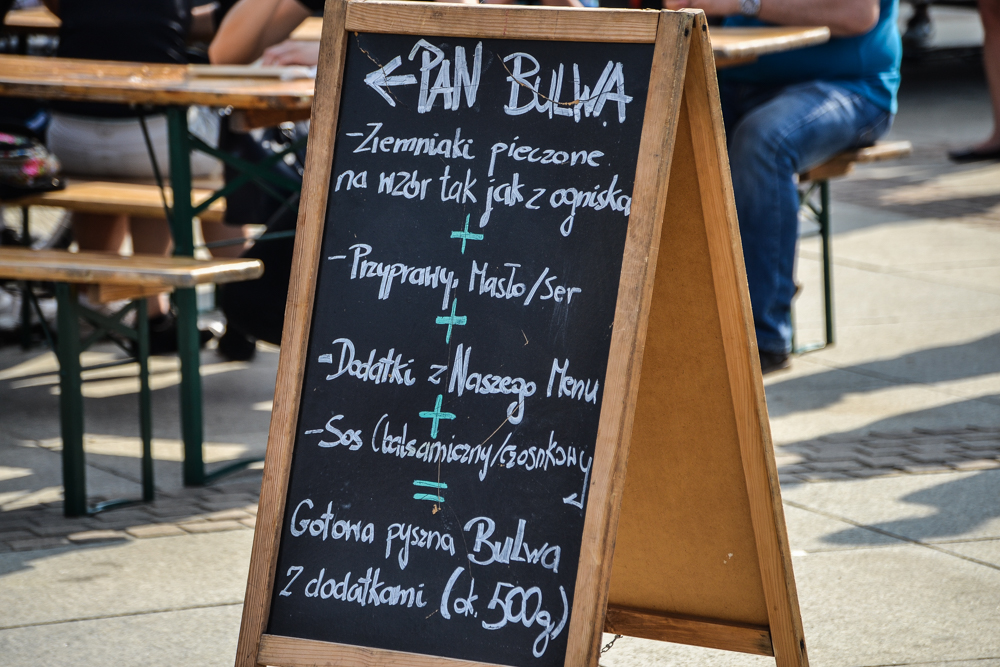 ← PAN BULWA
-Ziemniaki pieczone
na wzór tak jak z ogniska
+
-Przyprawy, Masło/Ser
+
-Dodatki z Naszego Menu
+
-Sos (balsamiczny/czosnkowy
=
Gotowa pyszna Bulwa
z dodatkami (ok. 500g)